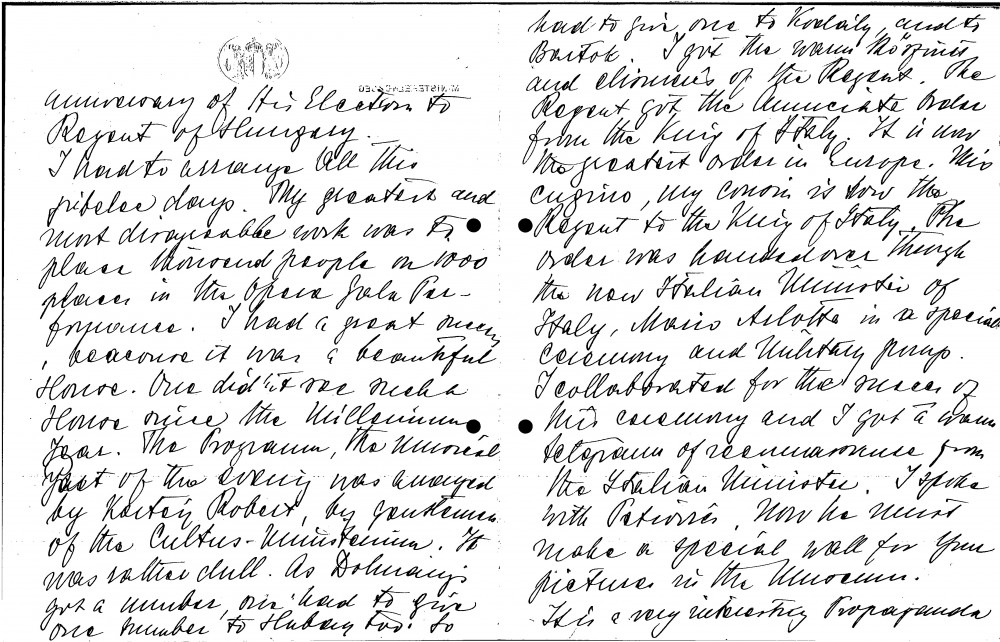 anniversary of His Election to
Regent of Hungary.
I had to arrange all this
jubelee days. My greatest and
most disagreable work was to
place thousend people on 1000
places in the Opera Gala Per-
formance. I had a great succes
, beacause it was a beautiful
House. One did'nt see such a
House since the Millenium
Year. The Programm, the musical
Part of the evening was arranged
by Robert, by gentlemen
of the Cultus-Ministerium. It
was rather dull. As Dohnanyi
got a number, one had to give
one number to Hubay too. So
had to give one to Kodály, and to
Bartok. I got the warm Köszönet
and elismerés of the Regent. The
Regent got the Anunciate Order
from the King of Italy. It is now
the greatest order in Europe. Mio
cugino, my cousin is now the
Regent to the King of Italy. The
order was handed over through
the new Italian Minister of
Italy, Mario Arlotta in a special
ceremony and Military pomp.
I collaborated for the succes of
this ceremony and I got a warm
telegramm of reconnaissance from
the Italian Minister. I spoke
with Petrovics. Now he must
make a special wall for your
pictures in the Museum.
It is a very interesting Propaganda